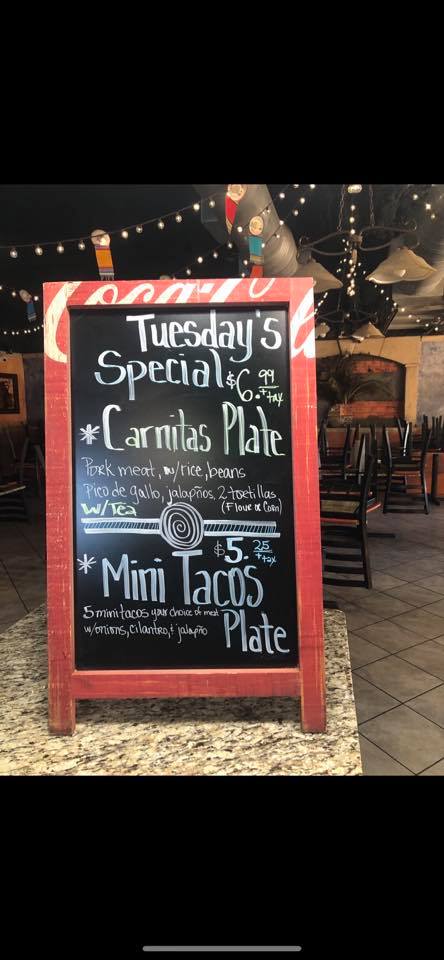 Coca-Cola
Tuesday's
Special $6.99
+ tax
* Carnitas Plate
Pork meat, w/rice, beans
Pico de gallo, jalapños, 2 tortillas
w/Tea (Flour or Corn)
$5.25
+ tax
* Mini Tacos
5 mini tacos your choice of meat
w/onions, cilantro, & jalapño Plate